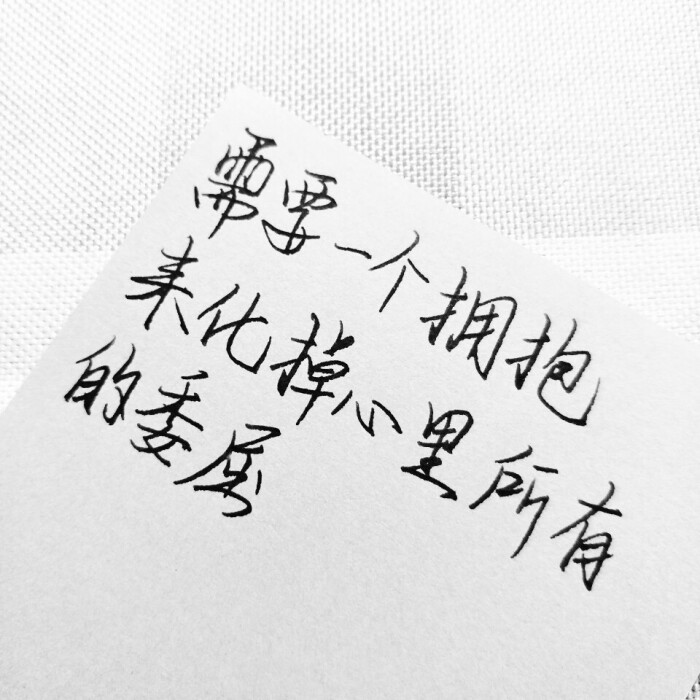 需要一个拥抱
来化掉心里所有
的委屈